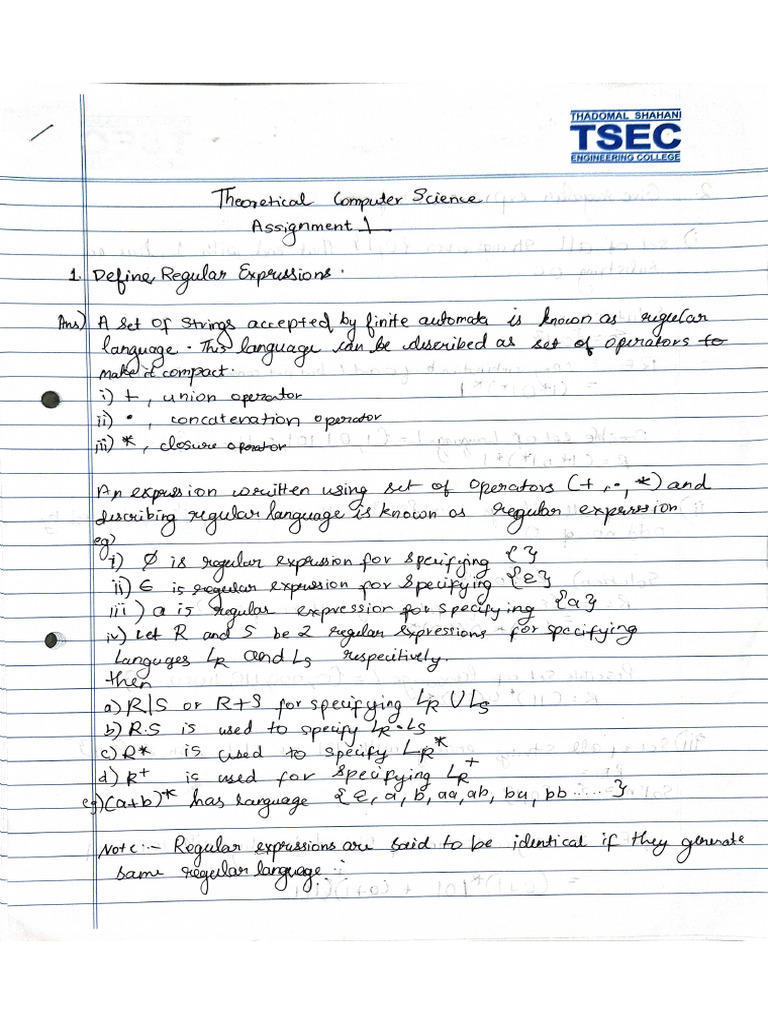 THADOMAL SHAHANI
TSEC
ENGINEERING COLLEGE
Theoretical Computer Science
Assignment 1
1. Define Regular Expressions.
Ans) A set of strings accepted by finite automata is known as regular
language. This language can be described as set of operators to
make it compact.
i) +, union operator
ii) •, concatenation operator
iii) *, closure operator
An expression written using set of operators (+, •, *) and
describing regular language is known as regular expression
eg)
i) ∅ is regular expression for specifying { }
ii) ϵ is regular expression for specifying {ϵ}
iii) a is regular expression for specifying {a}
iv) Let R and S be 2 regular expressions for specifying
languges L_R and L_S respecitively.
then
a) R|S or R+S for specifying L_R ∪ L_S
b) R.S is used to specify L_R • L_S
c) R* is used to specify L_R*
d) R⁺ is used for specifying L_R⁺
eg) (a+b)* has language {ϵ, a, b, aa, ab, ba, bb ..... }
Note :- Regular expressions are said to be identical if they generate
same regular language.